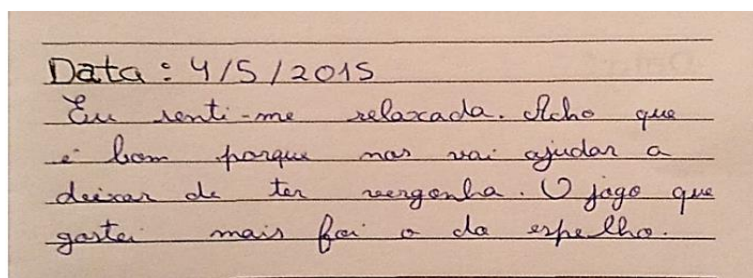 Data : 4/5/2015
Eu senti-me relaxada. Acho que
é bom porque nos vai ajudar a
deixar de ter vergonha. O jogo que
gostei mais foi o do espelho.